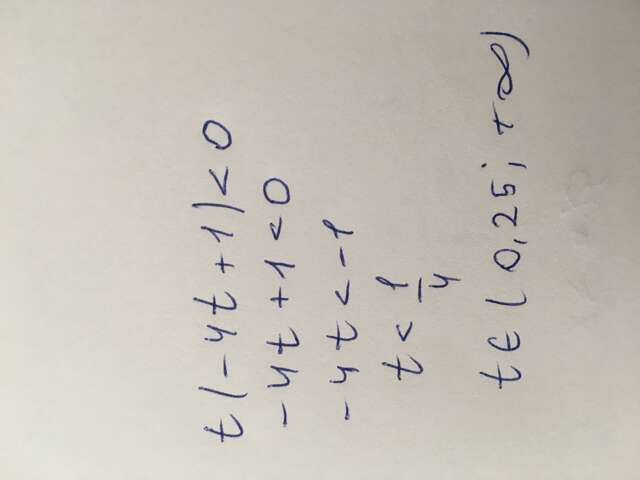 t(-4t+1)<0
-4t+1<0
-4t<-1
t<1/4
t∈(0,25;+∞)